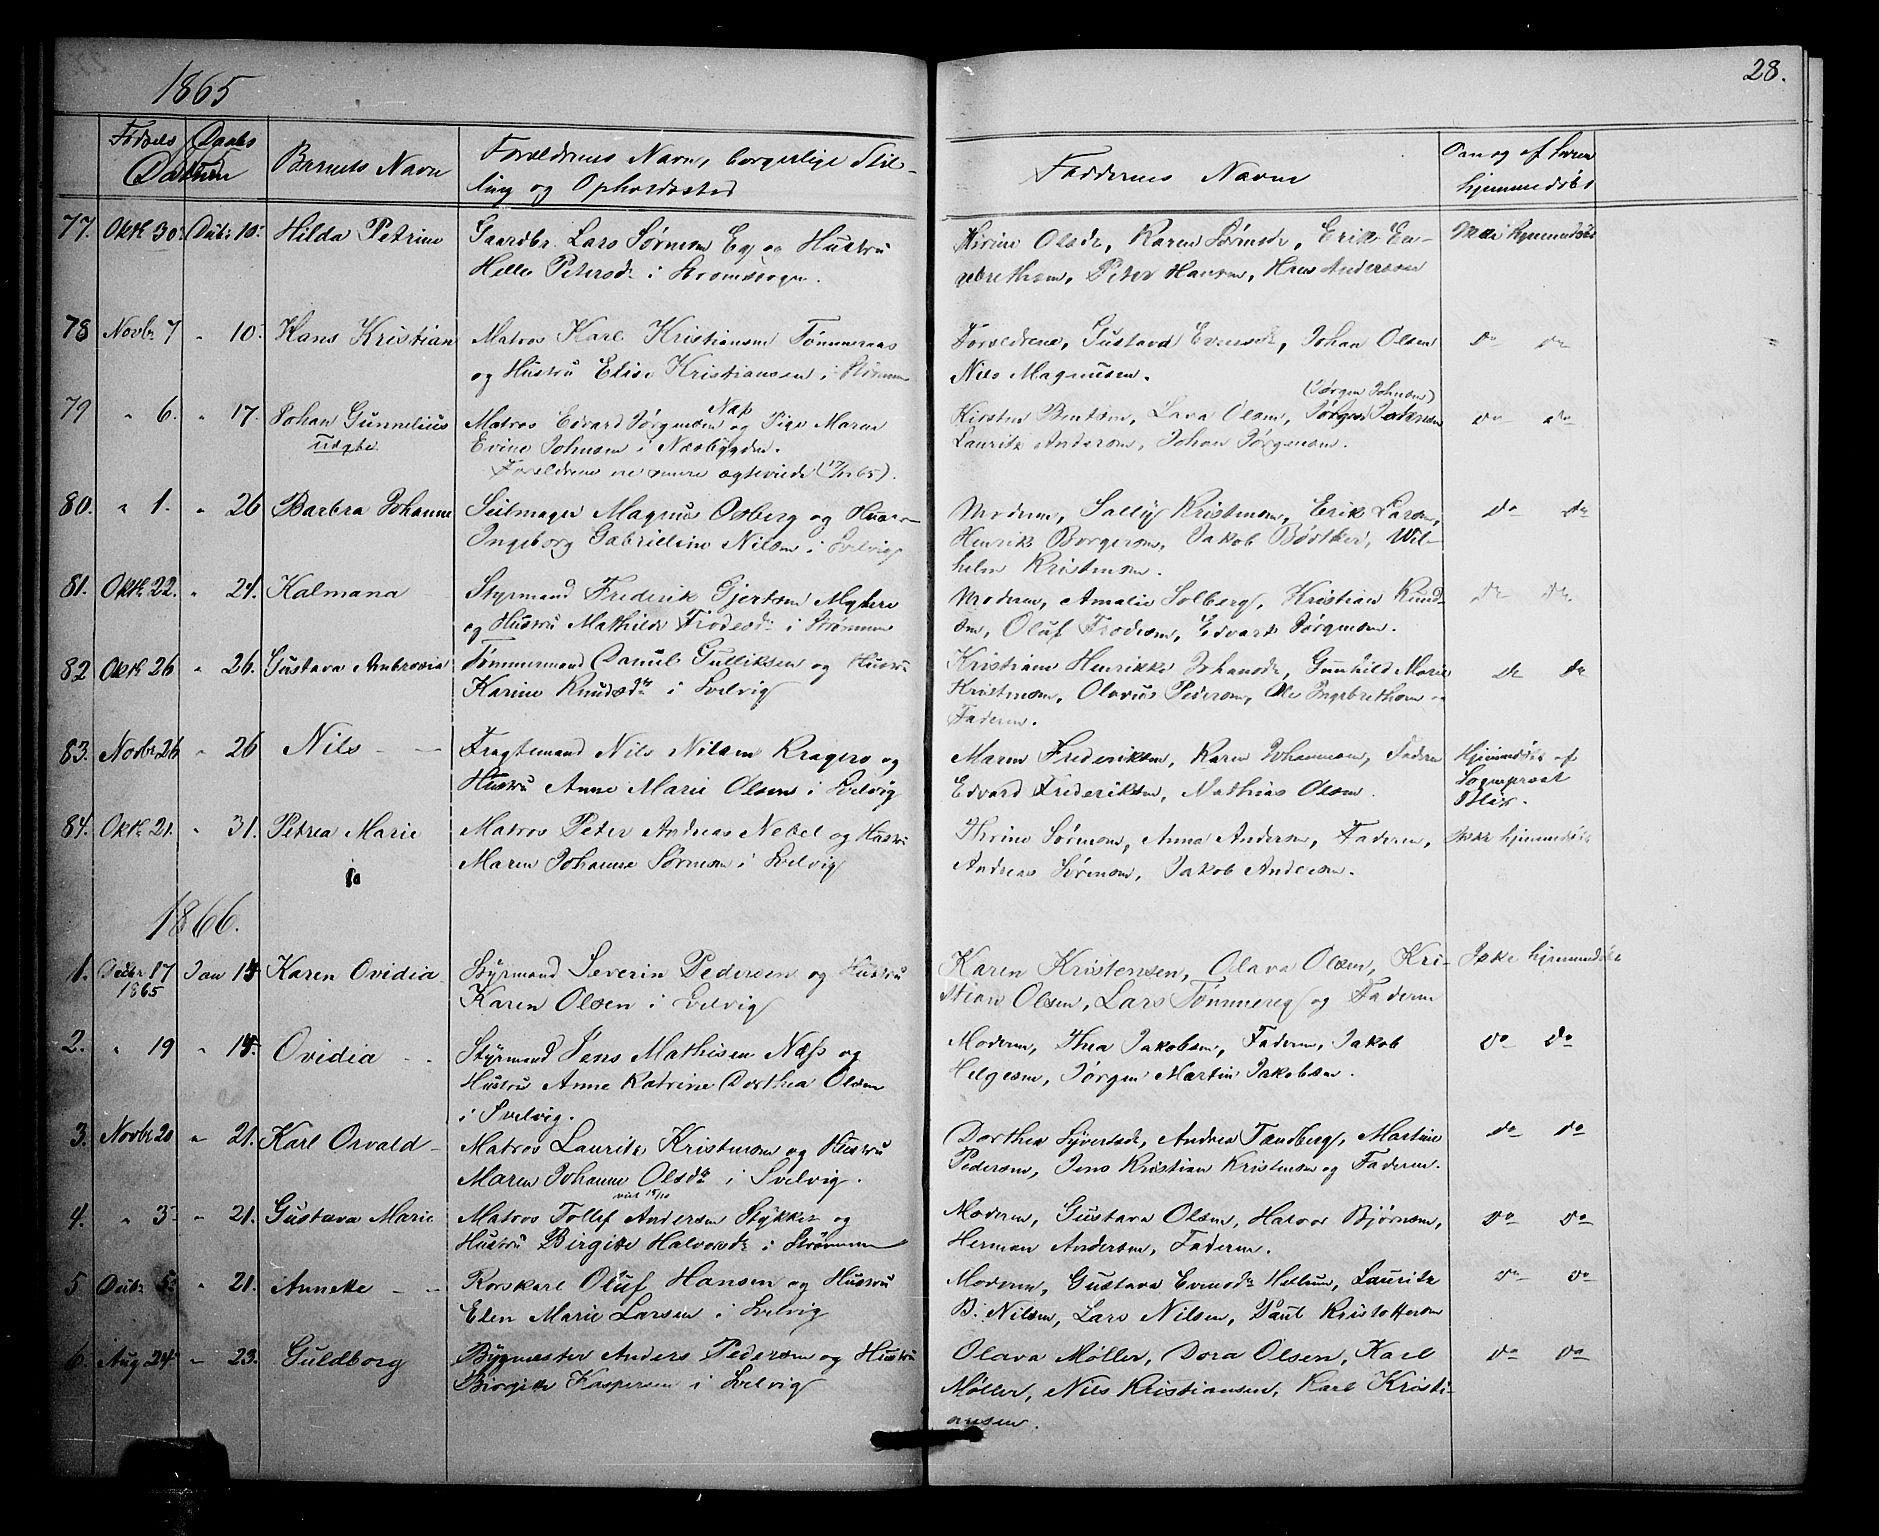 1865
28.
Fødsels Daabs
Datum
Barnets Navn
Forældrenes Navn, borgerlige Stil-
ling og Opholdssted
Faddernes Navne
Om og af hvem
hjemmedøbt
77. Oktb. 30. Decbr. 10. Hilda Petrine
Gaardbr. Lars Sørensen Eg og Hustru
Helle Petersdr i Strømsbogn.
Olsdr, Karen Sørensdr, Erik En-
gebrethsen, Peter Hansen, Hans Anderssen
hjemmedøbt
78 Novbr. 7 " 10. Hans Kristian
Matros Karl Kristiansen Tømmeraas
og Hustru Elise Kristiansen i Strømmen
Forældrene, Gustava Evensdr, Johan Olsen
Nils Magnusen.
do do
79 " 6. " 17. Johan Gunnelius
uægte
Matros Edvard Jørgensen Næs og Pige Maren
Evine Johnsen i Næsbygden.
Forældrene ere senere ægteviede (17/12 65).
(Jørgen Johnsen)
Kirsten Bentsen, Lava Olsen, Jørgen Pedersen
Laurits Andersen, Johan Jørgensen.
do do
80. " 1. " 26 Barbra Johanne
Seilmager Magnus Osberg og Hustru
Ingeborg Gabrielsine Nilsen i Svelvig
Moderen, Sally Kristensen, Erik Larsen,
Henrik Borgersen, Jakob Bøtker, Wil-
helm Kristensen.
do do
81. Oktb. 22. " 24. Kalmana
Styrmand Frederik Gjertsen Myhere
og Hustru Mathilde Frodesdr i Strømmen
Moderen, Amalie Solberg, Kristian Knud-
sen, Oluf Frodesen, Edvard Jørgensen.
do do
82 Oktb. 26 " 26. Gustava Ambrosia
Tømmermand Daniel Gulliksen og Hustru
Karine Knudsdr i Svelvig
Kristiane Henrikke Johansdr, Gunhild Marie
Kristensen, Olavus Pedersen, Ole Ingebrethsen og
Faderen.
do do
83. Novbr. 26 " 26 Nils
Fragtemand Nils Nilsen Kragerø og
Hustru Anne Marie Olsen i Svelvig
Maren Frederiksen, Karen Johannesen, Faderen
Edvard Frederiksen, Mathias Olsen.
Hjemmedøbt af
Sogneprest
Blix.
84. Oktb. 21. " 31. Petrea Marie
Matros Peter Andreas Nebel og Hustru
Maren Johanne Sørensen i Svelvig
Thrine Sørensen, Anna Andersen, Faderen,
Andreas Sørensen, Jakob Andersen.
Ikke hjemmedøbt
1866.
1. Decbr 17 Jan 14 Karen Ovidia
1865
Styrmand Severin Pedersen og Hustru
Karen Olsen i Svelvig
Karen Kristensen, Olava Olsen, Kri-
stian Olsen, Lars Tømmereg og Faderen
Ikke hjemmedøbt
2. " 19 " 14. Ovidia
Styrmand Jens Mathisen Næss og
Hustru Anne Katrine Dorthea Olsen
i Svelvig.
Moderen, Thea Jakobsen, Faderen, Jakob
Helgesen, Jørgen Martin Jakobsen.
do do
3. Novbr 20 " 21. Karl Osvald
Matros Laurits Kristensen og Hustru
Maren Johanne Olsdr i Svelvig.
Dorthea Syversdr, Andrea Tandberg, Martine
Pedersen, Jens Kristian Kristensen og Faderen.
do do
4. " 3 " 21. Gustava Marie
Matros Tollef Andersen Stykket og
Hustru Birgitte Halvorsdr i Strømmen
Moderen, Gustava Olsen, Halvor Bjørnsen,
Herman Andersen, Faderen.
do do
5 Decbr 5. " 21. Annette
Rorskarl Oluf Hansen og Hustru
Elen Marie Larsen i Svelvig
Moderen, Gustava Evensdr Hellum, Laurits
B. Nilsen, Lars Nilsen, Paul Kristoffersen
do do
6. Aug 24 " 23. Guldborg
Bygmester Anders Pedersen og Hustru
Birgitte Kaspersen i Svelvig
Olava Møller, Dora Olsen, Karl
Møller, Nils Kristiansen, Karl Kristi-
ansen.
do do